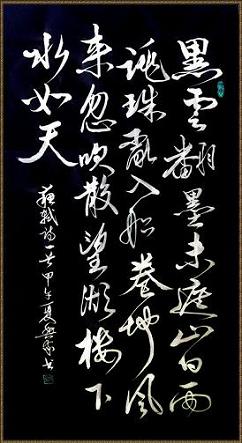 黑雲翻墨未遮山白雨
跳珠亂入船卷地風
来忽吹散望湖樓下
水如天
蘇軾詩一首甲午夏